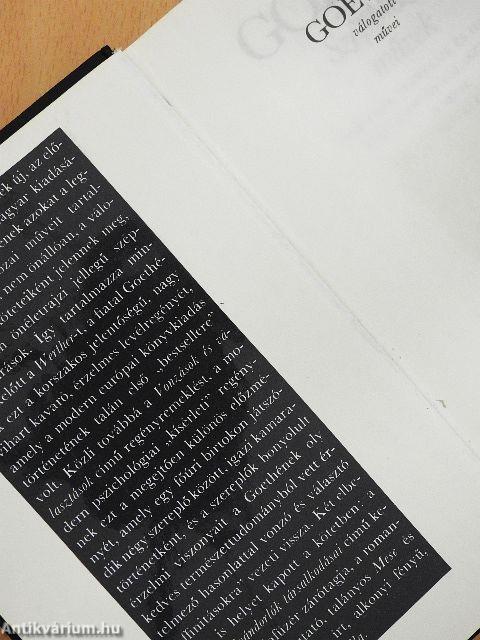 GOE
válogatott
művei
ek új, az elő-
agyar kiadásá-
enek azokat a leg
ózai műveit tartal-
nem önállóan, a válo-
ötetekként jelennek meg.
önéletrajzi jellegű szép
ások. Így tartalmazza min-
előtt a Werthert, a fiatal Goethé-
ezt a korszakos jelentőségű, nagy
ihart kavaró, érzelmes levélregényét,
amely a modern európai könyvkiadás
történetének talán első „bestsellere"
volt. Közli továbbá a Vonzások és vá-
lasztások című regényremeklést, a mo-
dern pszichológiai „kísérleti" regény-
nek ezt a megejtően különös előzmé-
nyét, amely egy főúri birtokon játszó-
dik négy szereplő között, igazi kamara-
történetként, és a szereplők bonyolult
érzelmi viszonyait a Goethének oly
kedves természettudományból vett ér-
telmező hasonlattal vonzó és választó
affinitásokra vezeti vissza. Két elbe-
is helyet kapott a kötetben: a
vándorlók társalkodásai című ke-
-füzér zárótagja, a roman-
ható, talányos Mese és
ért, alkonyi fényű,
Antikvárium.hu